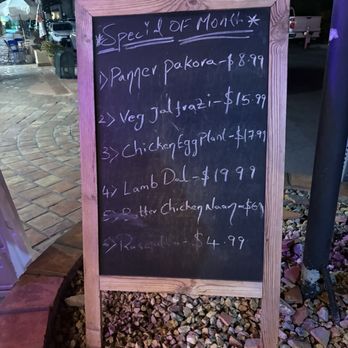 *Special OF Month*
1> Panner pakora-$8.99
2> Veg Jalfrazi-$15.99
3> Chicken EggPlant-$17.99
4> Lamb Dal-$19.99
5> Butter Chicken Naan-$6
$4.99